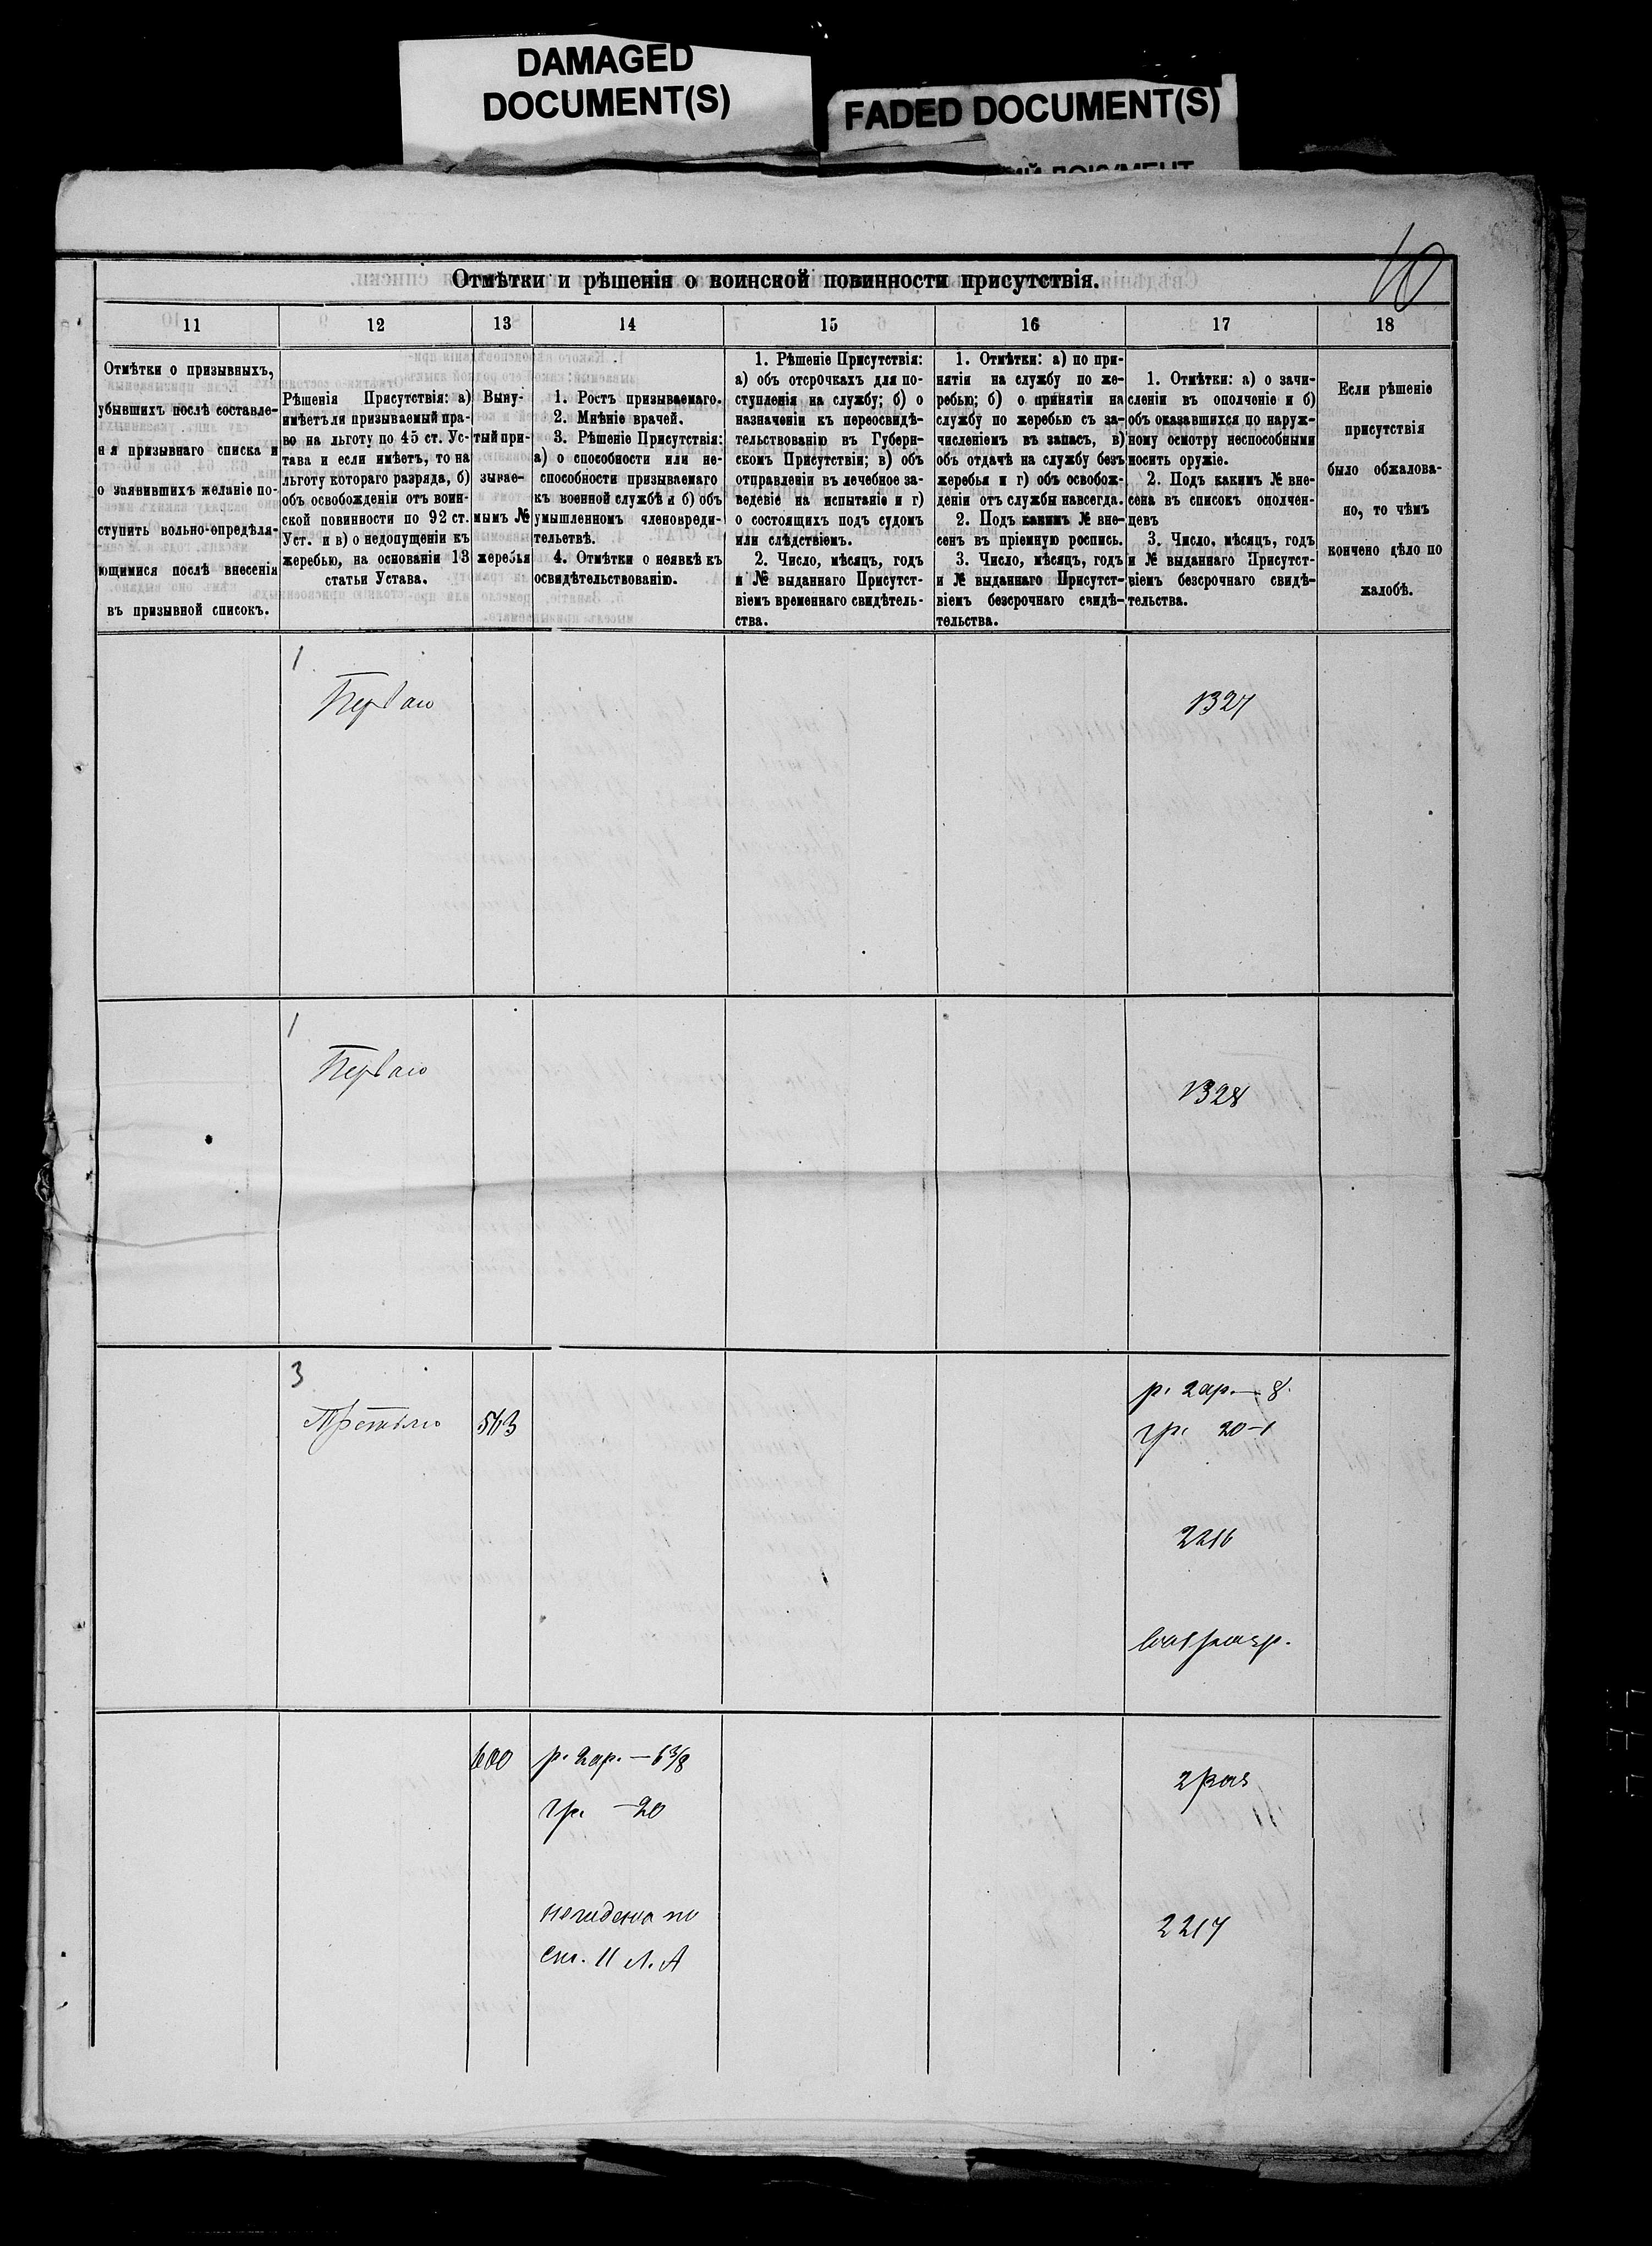 DAMAGED
DOCUMENT(S)
FADED DOCUMENT(S)
10
Отмѣтки и рѣшенія о воинской повинности присутствія.
11
12
13
14
15
16
17
18
Отмѣтки о призывныхъ,
убывшихъ послѣ составле-
н я призывнаго списка и
о заявившихъ желаніе по-
ступить вольно-опредѣля-
ющимися послѣ внесенія
въ призывной списокъ.
Рѣшенія Присутствія: а)
имѣетъ ли призываемый пра-
во на льготу по 45 ст. Ус-
тава и если имѣетъ, то на
льготу котораго разряда, б)
объ освобожденіи отъ воин-
ской повинности по 92 ст.
Уст. и в) о недопущеніи къ
жеребью, на основаніи 13
статьи Устава.
Выну-
тый при-
зывае-
мымъ №
жеребья
1. Ростъ призываемаго.
2. Мнѣніе врачей.
3. Рѣшеніе Присутствія:
а) о способности или не-
способности призываемаго
къ военной службѣ и б) объ
умышленномъ членовреди-
тельствѣ.
4. Отмѣтки о неявкѣ къ
освидѣтельствованію.
1. Рѣшеніе Присутствія:
а) объ отсрочкахъ для по-
ступленія на службу; б) о
назначеніи къ переосвидѣ-
тельствованію въ Губерн-
скомъ Присутствіи; в) объ
отправленіи въ лечебное за-
веденіе на испытаніе и г)
о состоящихъ подъ судомъ
или слѣдствіемъ.
2. Число, мѣсяцъ, годъ
и № выданнаго Присутст-
віемъ временнаго свидѣтель-
ства.
1. Отмѣтки: а) по при-
нятіи на службу по же-
ребью; б) о принятіи на
службу по жеребью съ за-
численіемъ въ запасъ, в)
объ отдачѣ на службу безъ
жеребья и г) объ освобож-
деніи отъ службы навсегда.
2. Подъ какимъ № вне-
сенъ въ пріемную роспись.
3. Число, мѣсяцъ, годъ
и № выданнаго Присутст-
віемъ безсрочнаго свидѣ-
тельства.
1. Отмѣтки: а) о зачи-
сленіи въ ополченіе и б)
объ оказавшихся по наруж-
ному осмотру неспособными
носить оружіе.
2. Подъ какимъ № вне-
сена въ списокъ ополчен-
цевъ
3. Число, мѣсяцъ, годъ
и № выданнаго Присутст-
віемъ безсрочнаго свидѣ-
тельства.
Если рѣшеніе
присутствія
было обжалова-
но, то чѣмъ
кончено дѣло по
жалобѣ.
1
Перваго
1327
1
Перваго
1328
3
Третьяго
563
р. 2 ар. — 8.
гр. 20-1
2216
600
р. 2 ар. — 6 3/8
гр. — 20
негоденъ по
сп. 11 Л. А
2 раз
2217